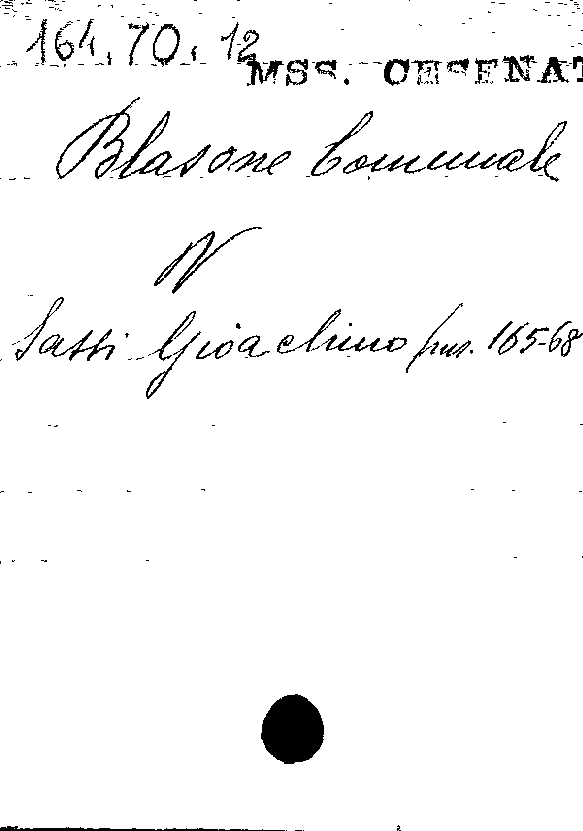 164.70.12
MSS. CESENAT
Blasone Comunale
V
Sassi Gioachino fus. 165-68